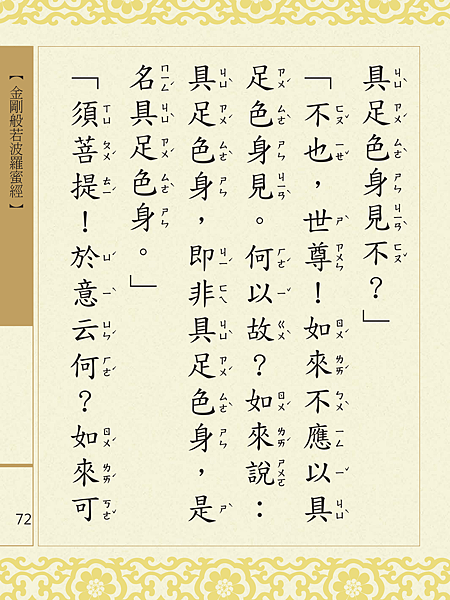 具足色身見不？」
「不也，世尊！如來不應以具
足色身見。何以故？如來說：
具足色身，即非具足色身，是
名具足色身。」
「須菩提！於意云何？如來可
【金剛般若波羅蜜經】
72